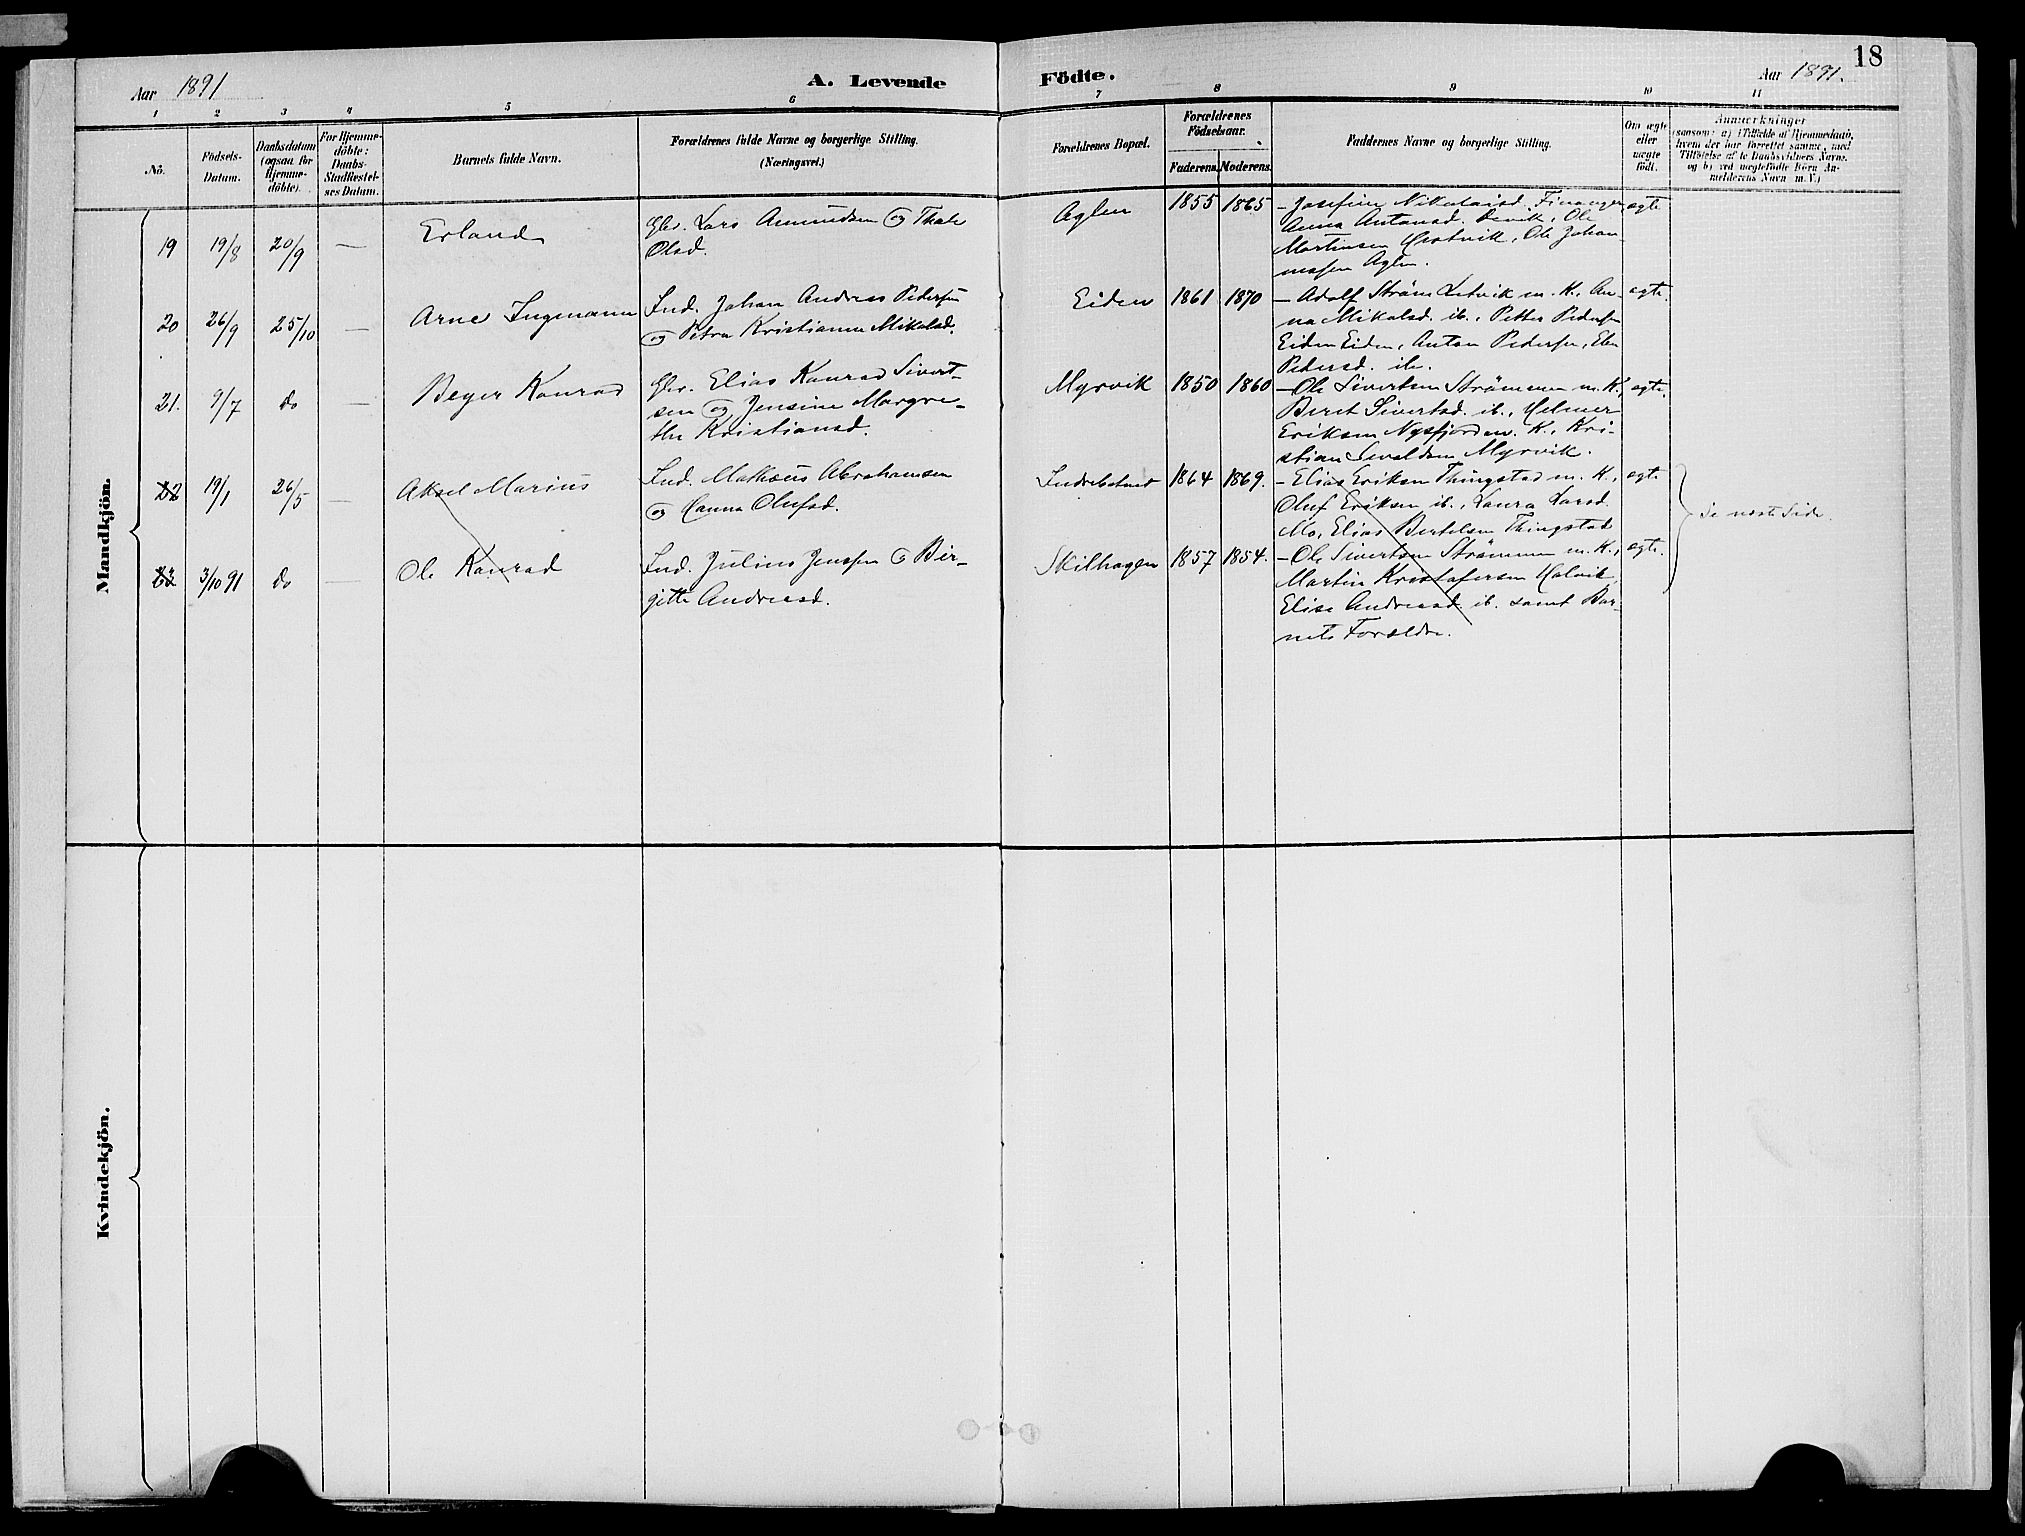 18
Aar 1891
A. Levende Födte.
Aar 1891.
1 2 3 4 5 6 7 8 9 10 11
No.
Födsels-
Datum.
Daabsdatum
(ogsaa for
Hjemme-
döbte).
For Hjemme-
döbte:
Daabs-
Stadfæstel-
ses Datum.
Barnets fulde Navn.
Forældrenes fulde Navne og borgerlige Stilling.
(Næringsvei.)
Forældrenes Bopæl.
Forældrenes
Födselsaar.
Faderens. Moderens.
Faddernes Navne og borgerlige Stilling.
Om ægte
eller
uægte
födt.
Anmærkninger
(saasom: a) i Tilfælde af Hjemmedaab,
hvem der har forrettet samme, med
Tilföielse af to Daabsvidners Navne,
og b) ved uægtefödte Börn An-
melderens Navn m. V.)
Mandkjön.
19 19/8 20/9 — Erland
Gbr. Lars Amundsen og Thale
Olsd.
Aglen 1855 1865
— Josefine Nikolaisd. Finanger,
Anna Antonsd. Devik, Ole
Martinsen Hestvik, Ole Johan-
nesen Aglen.
ægte
20 26/9 25/10 — Arne Ingemann
Ind. Johan Andreas Pedersen
og Petra Kristianna Mikalsd.
Eiden 1861 1870
— Adolf Strøm Letvik m. K., An-
na Mikalsd. ib., Petter Pedersen
Eiden Eiden, Anton Pedersen, Elen
Pedersd. ib.
ægte.
21. 9/7 do — Beyer Konrad
Gbr. Elias Konrad Sivert-
sen og Jensine Margre-
the Kristiansd.
Myrvik 1850 1860
— Ole Sivertsen Strømmen m. K.,
Beret Sivertsd. ib., Helmer
Eriksen Nysfjord m. K., Kri-
stian Sivaldsen Myrvik.
ægte.
22 19/1 26/5 — Aksel Marius
Ind. Mathæus Abrahamsen
og Hanna Olufsd.
Indrebotnet 1864 1869.
— Elias Eriksen Thingstad m. K.,
Oluf Eriksen ib., Laura Larsd.
Mo, Elias Bertelsen Thingstad
ægte
Se neste Side.
23 3/10 91 do — Ole Konrad
Ind. Julius Jenssen og Bir-
gitte Andreasd.
Skilhagen 1857 1854.
— Ole Sivertsen Strømmen m. K.,
Martin Kristofersen Halvik,
Elise Andreasd. ib. samt Bar-
nets Forældre.
ægte.
Kvindekjön.